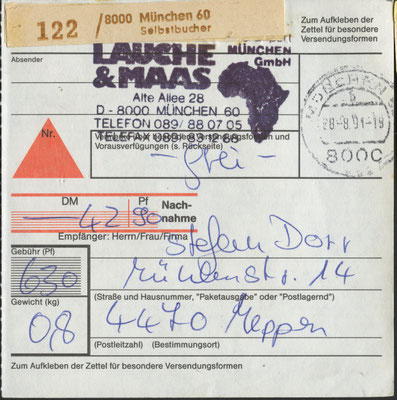 122 / 8000 München 60
Selbstbucher
Zum Aufkleben der
Zettel für besondere
Versendungsformen
Absender
LAUCHE
& MAAS
MÜNCHEN
GmbH
Alte Allee 28
D - 8000 MÜNCHEN 60
TELEFON 089/ 88 07 05
TELEFAX 089/ 83 12 88
Nr.
Vorausverfügungen (s. Rückseite)
- frei -
MÜNCHEN
b
28-8.91-19
8000
DM Pf
42 90
Nach-
nahme
Empfänger: Herrn/Frau/Firma
Stefan Dorr
Gebühr (Pf)
630
Mühlenstr. 14
Gewicht (kg)
(Straße und Hausnummer, "Paketausgabe" oder "Postlagernd")
0,8
4470 Meppen
(Postleitzahl) (Bestimmungsort)
Zum Aufkleben der Zettel für besondere Versendungsformen